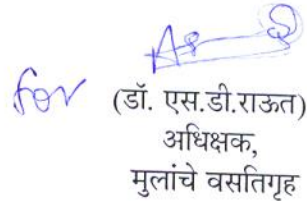 for
(डॉ. एस.डी.राऊत)
अधिक्षक,
मुलांचे वसतिगृह